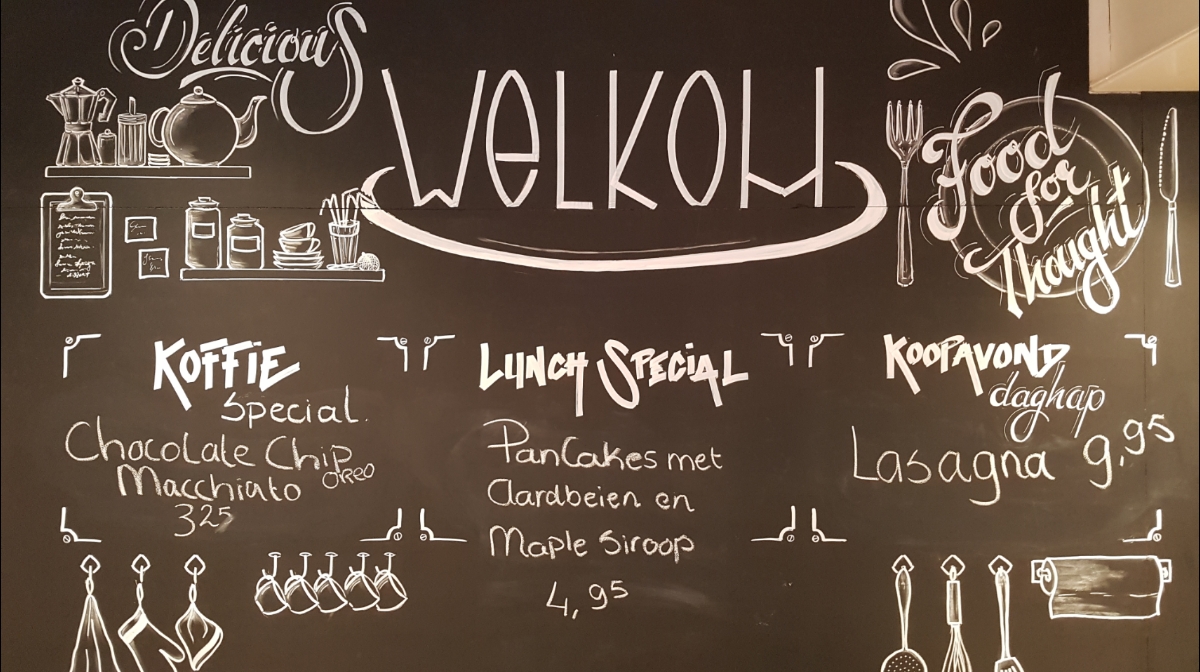 Delicious
WELKOM
Food
for
Thought
KOFFIE
Special.
Chocolate Chip
Oreo
Macchiato
3 25
LUNCH SPECIAL
PanCakes met
Aardbeien en
Maple Siroop
4,95
KOOPAVOND
daghap
Lasagna 9,95